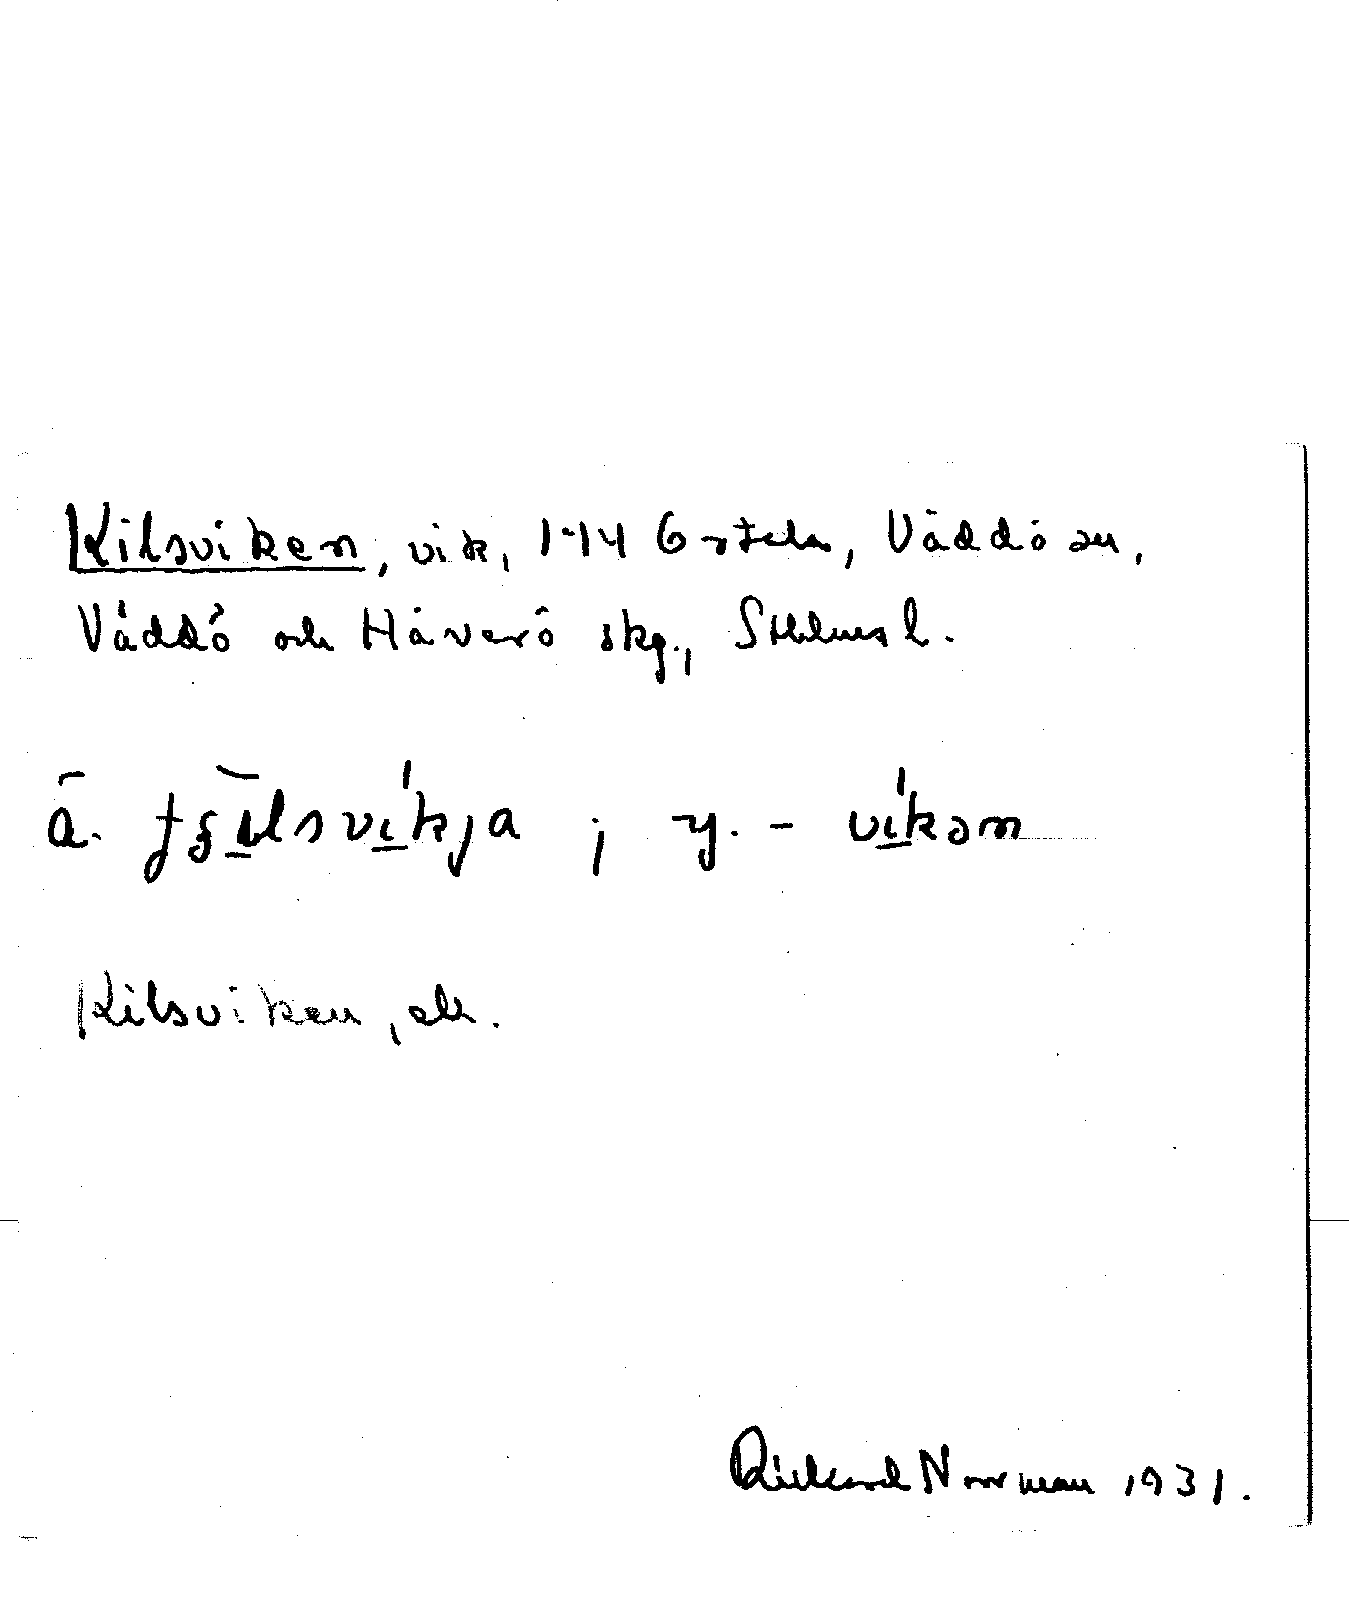 Kilsviken, vik, 1-14 Gåsteln, Väddö sn,
Väddö och Häverö skg., Sthlms l.
ä. tʂilsvíkja ; y. - víkən
Kilsviken, ek.
Rickard Norrman 1931.